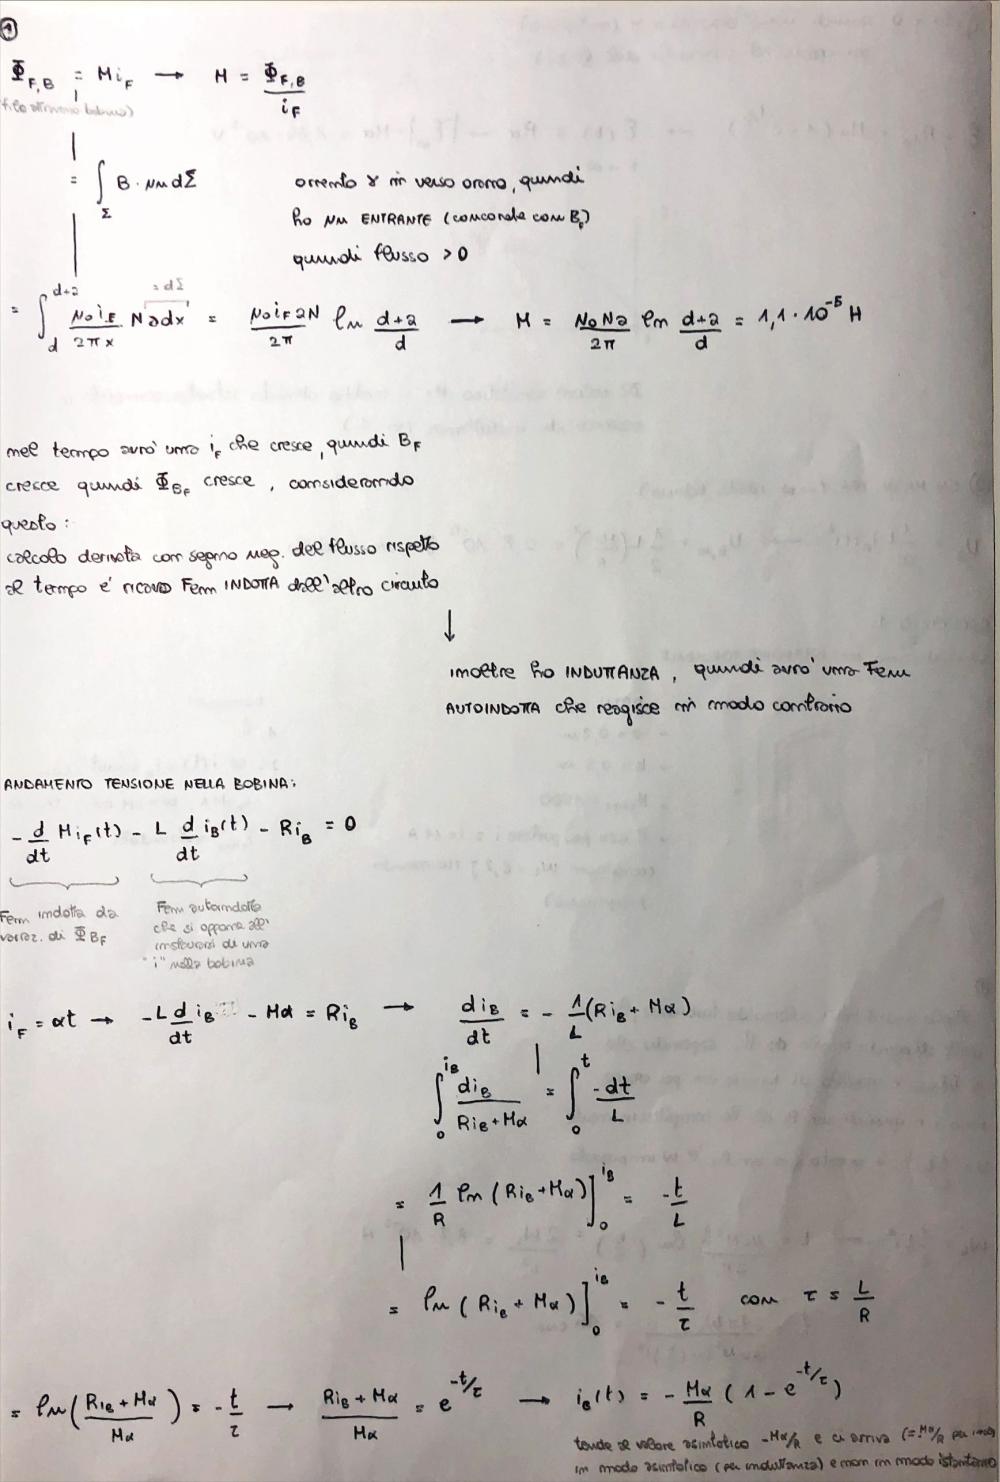 1
Φ_F,B = M i_F → M = Φ_F,B / i_F
(filo attraverso bobina)
= ∫_Σ B · μm dΣ
oriento γ in verso orario, quindi
ho μm ENTRANTE (concorde com B_F)
quindi flusso > 0
= ∫_d^{d+a} μ0 i_F / 2πx N a dx = μ0 i_F a N / 2π ln (d+a)/d → M = μ0 N a / 2π ln (d+a)/d = 1,1 · 10^-5 H
= dΣ
nel tempo avrò una i_F che cresce, quindi B_F
cresce quindi Φ_B_F cresce, considerando
questo:
calcolo derivata con segno neg. del flusso rispetto
al tempo e' ricavo Fem INDOTTA dall'altro circuito
↓
inoltre ho INDUTTANZA, quindi avro' una Fem
AUTOINDOTTA che reagisce in modo contrario
ANDAMENTO TENSIONE NELLA BOBINA:
- d/dt M i_F(t) - L d/dt i_B(t) - R i_B = 0
Fem indotta da
variaz. di Φ_B_F
Fem autoindotta
che si oppone all'
instaurarsi di una
"i" nella bobina
i_F = αt → -L d/dt i_B - Mα = R i_B → d i_B/dt = - 1/L (R i_B + Mα)
∫_0^{i_B} d i_B / (R i_B + Mα) = ∫_0^t -dt/L
= 1/R ln (R i_B + Mα)]_0^{i_B} = -t/L
= ln (R i_B + Mα)]_0^{i_B} = - t/τ com τ = L/R
= ln ((R i_B + Mα)/Mα) = - t/τ → (R i_B + Mα)/Mα = e^{-t/τ} → i_B(t) = - Mα/R (1 - e^{-t/τ})
tende al valore asintotico -Mα/R e ci arriva (= Mα/R per
in modo asintotico (per induttanza) e non in modo istantaneo